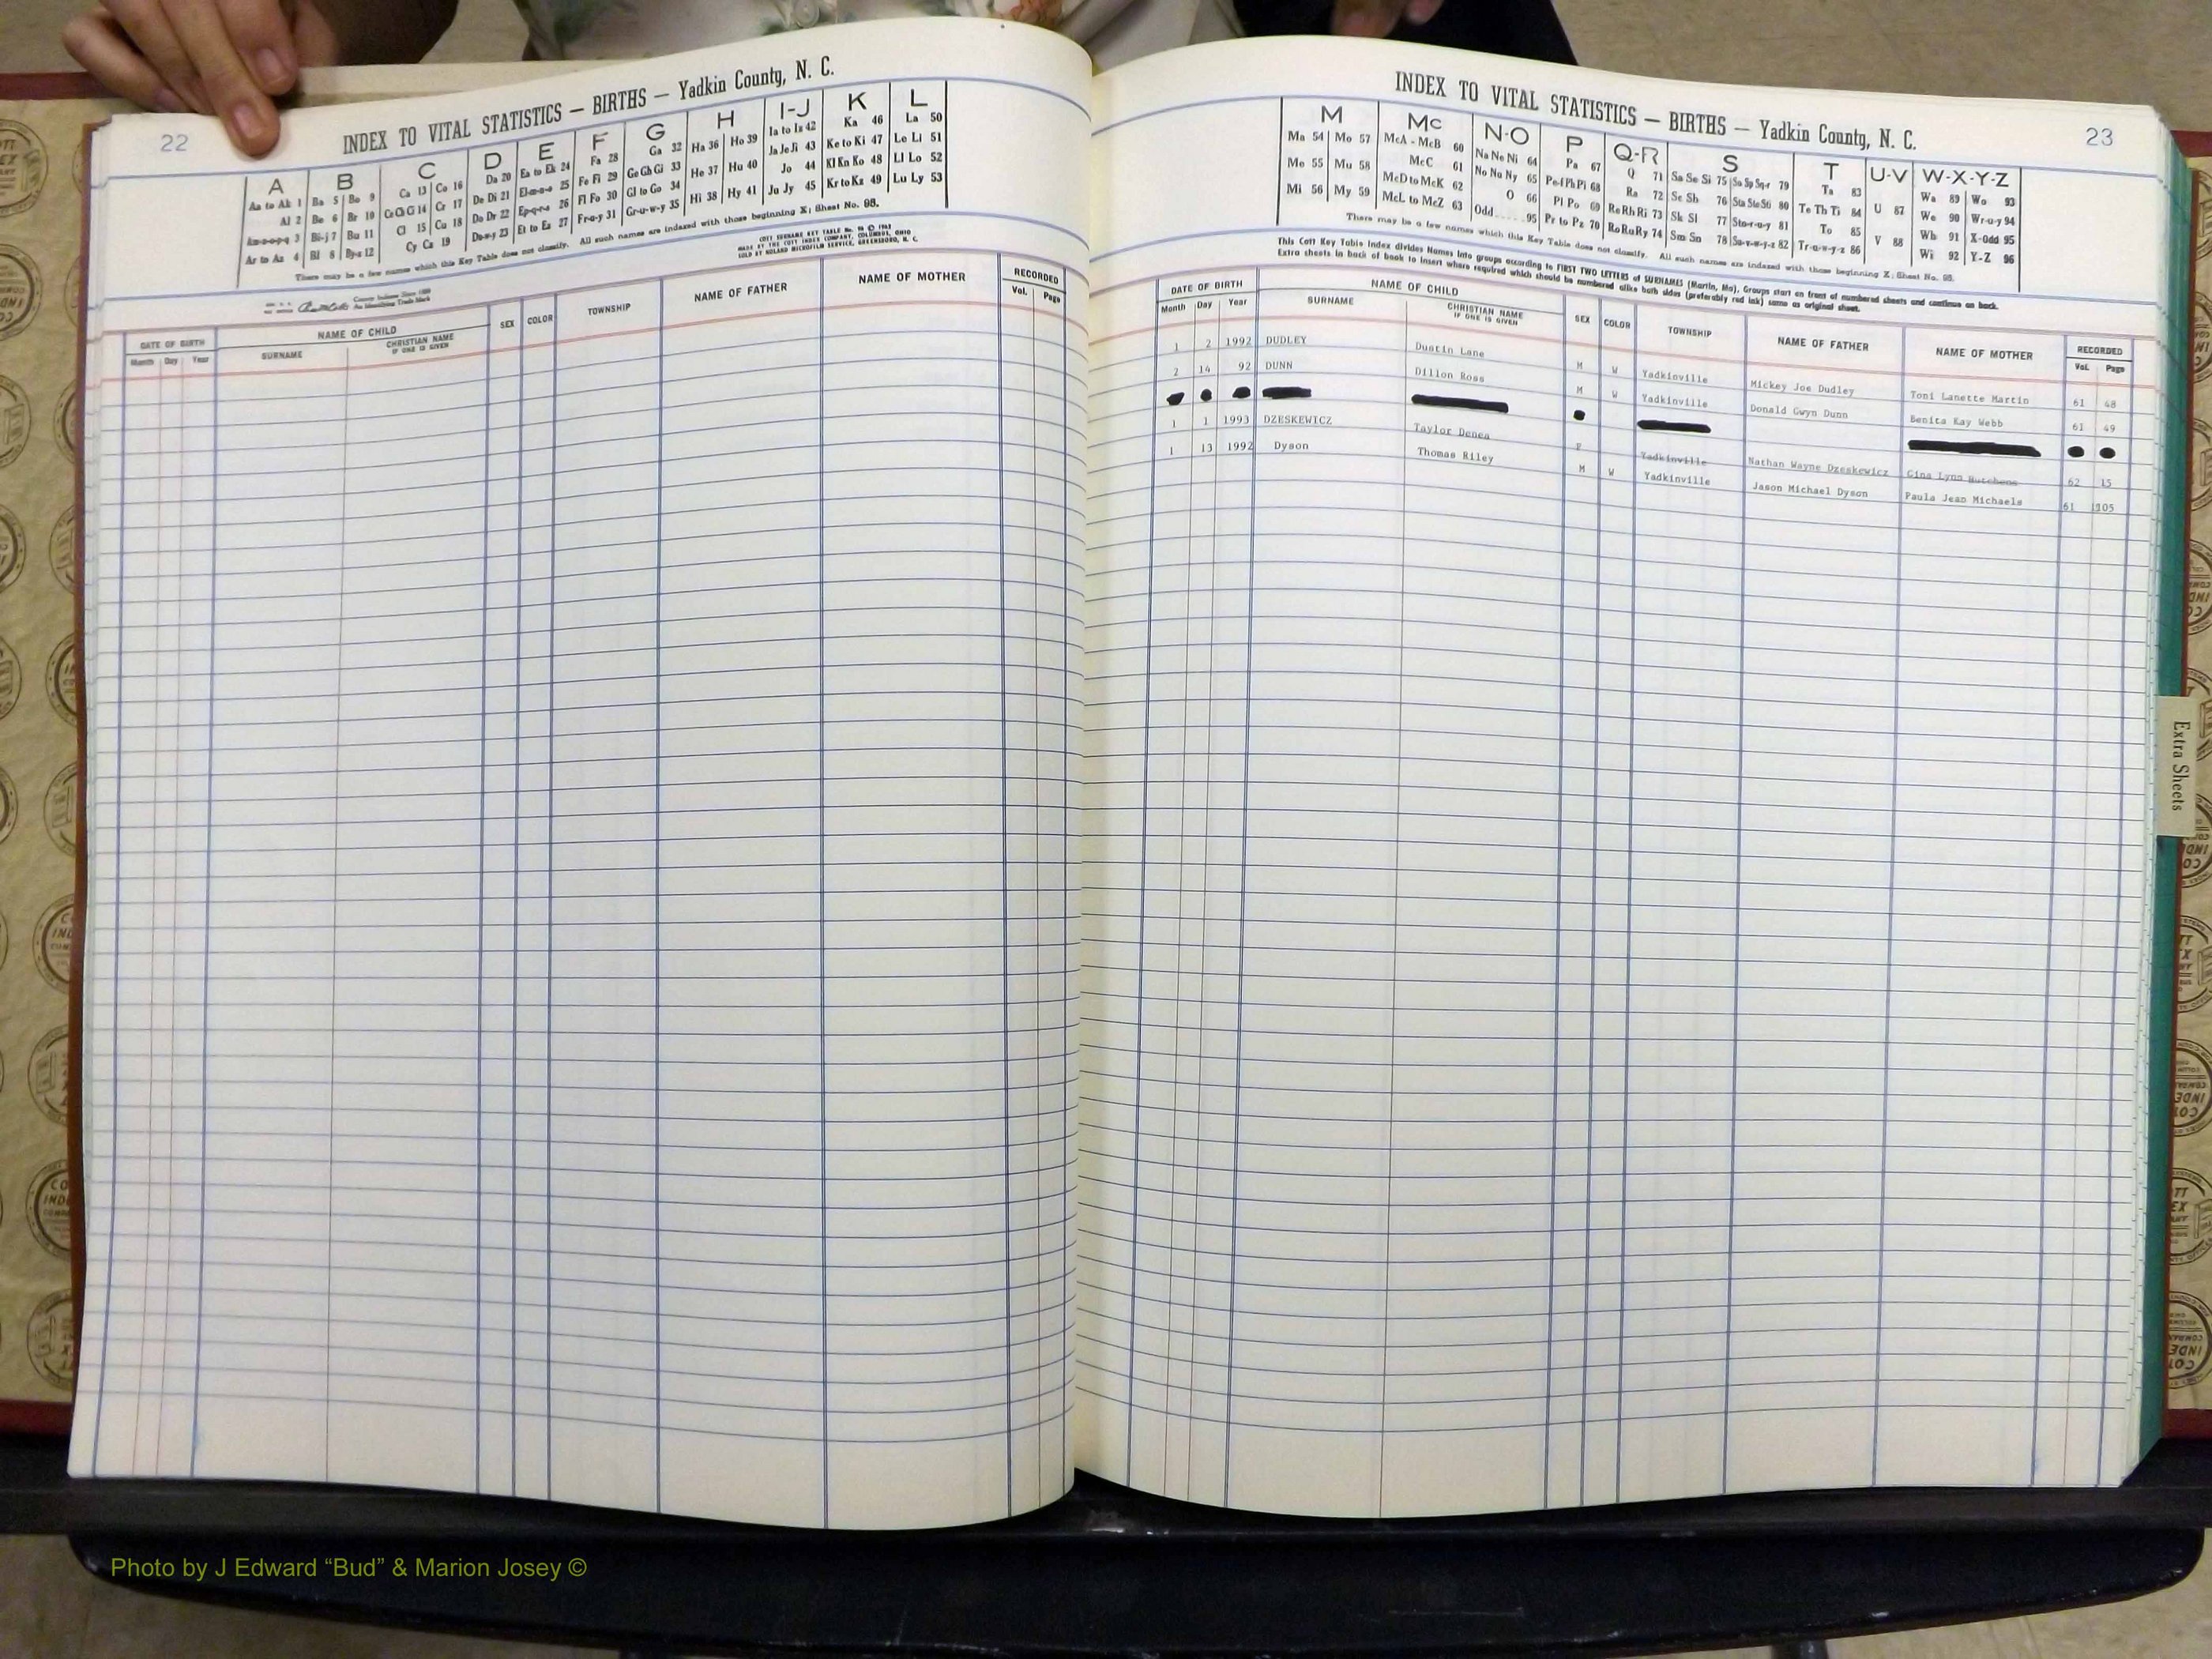 22
INDEX TO VITAL STATISTICS — BIRTHS — Yadkin County, N. C.
A B C D E F G H I-J K L
Aa to Ak 1 Ba 5 Bo 9 Ca 13 Co 16 Da 20 Ea to Ek 24 Fa 28 Ga 32 Ha 36 Ho 39 Ia to Iz 42 Ka 46 La 50
Al 2 Be 6 Br 10 Ce Ch Ci 14 Cr 17 De Di 21 El-m-n-o 25 Fe Fi 29 Ge Gh Gi 33 He 37 Hu 40 Ja Je Ji 43 Ke to Ki 47 Le Li 51
Am-n-o-p-q 3 Bi-j 7 Bu 11 Cl 15 Cu 18 Do Dr 22 Ep-q-r-s 26 Fl Fo 30 Gl to Go 34 Hi 38 Hy 41 Jo 44 Kl Kn Ko 48 Ll Lo 52
Ar to Az 4 Bl 8 By-z 12 Cy Cz 19 Du-w-y 23 Et to Ez 27 Fr-u-y 31 Gr-u-w-y 35 Ju Jy 45 Kr to Kz 49 Lu Ly 53
There may be a few names which this Key Table does not classify. All such names are indexed with those beginning X; Sheet No. 95.
COTT SURNAME KEY TABLE
MADE BY THE COTT INDEX COMPANY, COLUMBUS, OHIO
SOLD BY NOLAND MICROFILM SERVICE, GREENSBORO, N. C.
County Indexes Since 1888
An Identifying Trade Mark
DATE OF BIRTH NAME OF CHILD SEX COLOR TOWNSHIP NAME OF FATHER NAME OF MOTHER RECORDED
Month Day Year SURNAME CHRISTIAN NAME IF ONE IS GIVEN Vol. Page
INDEX TO VITAL STATISTICS — BIRTHS — Yadkin County, N. C.
23
M Mc N-O P Q-R S T U-V W-X-Y-Z
Ma 54 Mo 57 McA - McB 60 Na Ne Ni 64 Pa 67 Q 71 Sa Se Si 75 So Sp Sq-r 79 Ta 83 U 87 Wa 89 Wo 93
Me 55 Mu 58 McC 61 No Nu Ny 65 Pe-f Ph Pi 68 Ra 72 Se Sh 76 Sta Ste Sti 80 Te Th Ti 84 V 88 We 90 Wr-u-y 94
Mi 56 My 59 McD to McK 62 O 66 Pl Po 69 Re Rh Ri 73 Sk Sl 77 Sto-r-u-y 81 To 85 Wh 91 X-Odd 95
McL to McZ 63 Odd 95 Pr to Pz 70 Ro Ru Ry 74 Sm Sn 78 Su-v-w-y-z 82 Tr-u-w-y-z 86 Wi 92 Y-Z 96
There may be a few names which this Key Table does not classify. All such names are indexed with those beginning X; Sheet No. 95.
This Cott Key Table Index divides Names into groups according to FIRST TWO LETTERS of SURNAMES (Martin, Ma), Groups start on front of numbered sheets and continue on back.
Extra sheets in back of book to insert where required which should be numbered alike both sides (preferably red ink) same as original sheet.
DATE OF BIRTH NAME OF CHILD SEX COLOR TOWNSHIP NAME OF FATHER NAME OF MOTHER RECORDED
Month Day Year SURNAME CHRISTIAN NAME IF ONE IS GIVEN Vol. Page
1 2 1992 DUDLEY Dustin Lane M W Yadkinville Mickey Joe Dudley Toni Lanette Martin 61 48
2 14 92 DUNN Dillon Ross M W Yadkinville Donald Gwyn Dunn Benita Kay Webb 61 49
1 1 1993 DZESKEWICZ Taylor Denea F Yadkinville Nathan Wayne Dzeskewicz Gina Lynn Hutchens 62 15
1 13 1992 Dyson Thomas Riley M W Yadkinville Jason Michael Dyson Paula Jean Michaels 61 105
Extra Sheets
Photo by J Edward “Bud” & Marion Josey ©